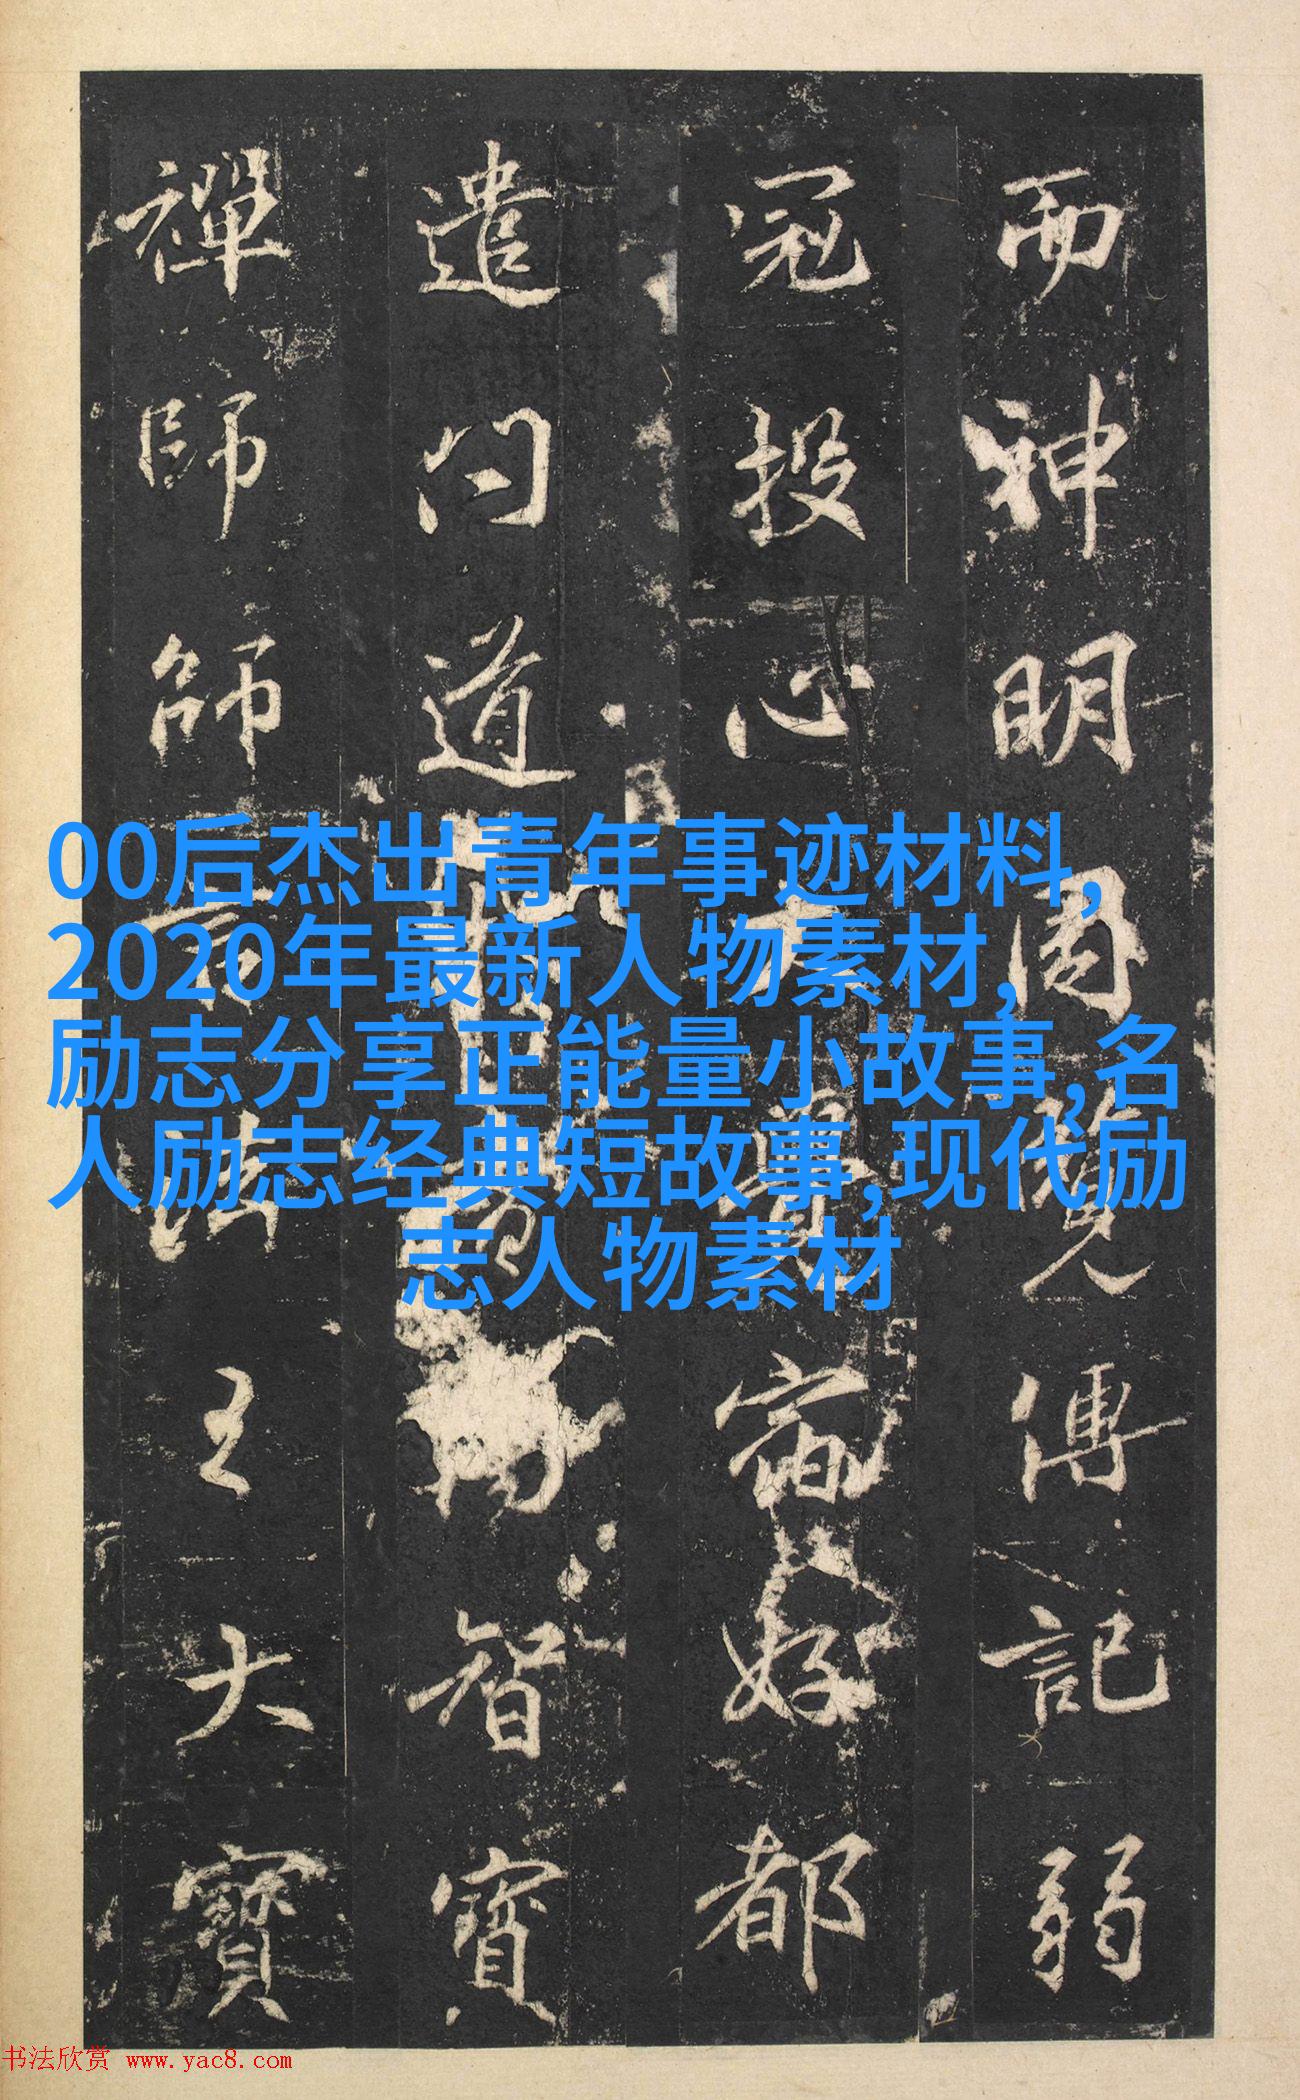 而神明固覽傳記弱
冠投心
宿好都
遣问道
智寶
禪師師
法主大寶
00后杰出青年事迹材料,
2020年最新人物素材,
励志分享正能量小故事,名
人励志经典短故事,现代励
志人物素材
书法欣赏 www.yac8.com